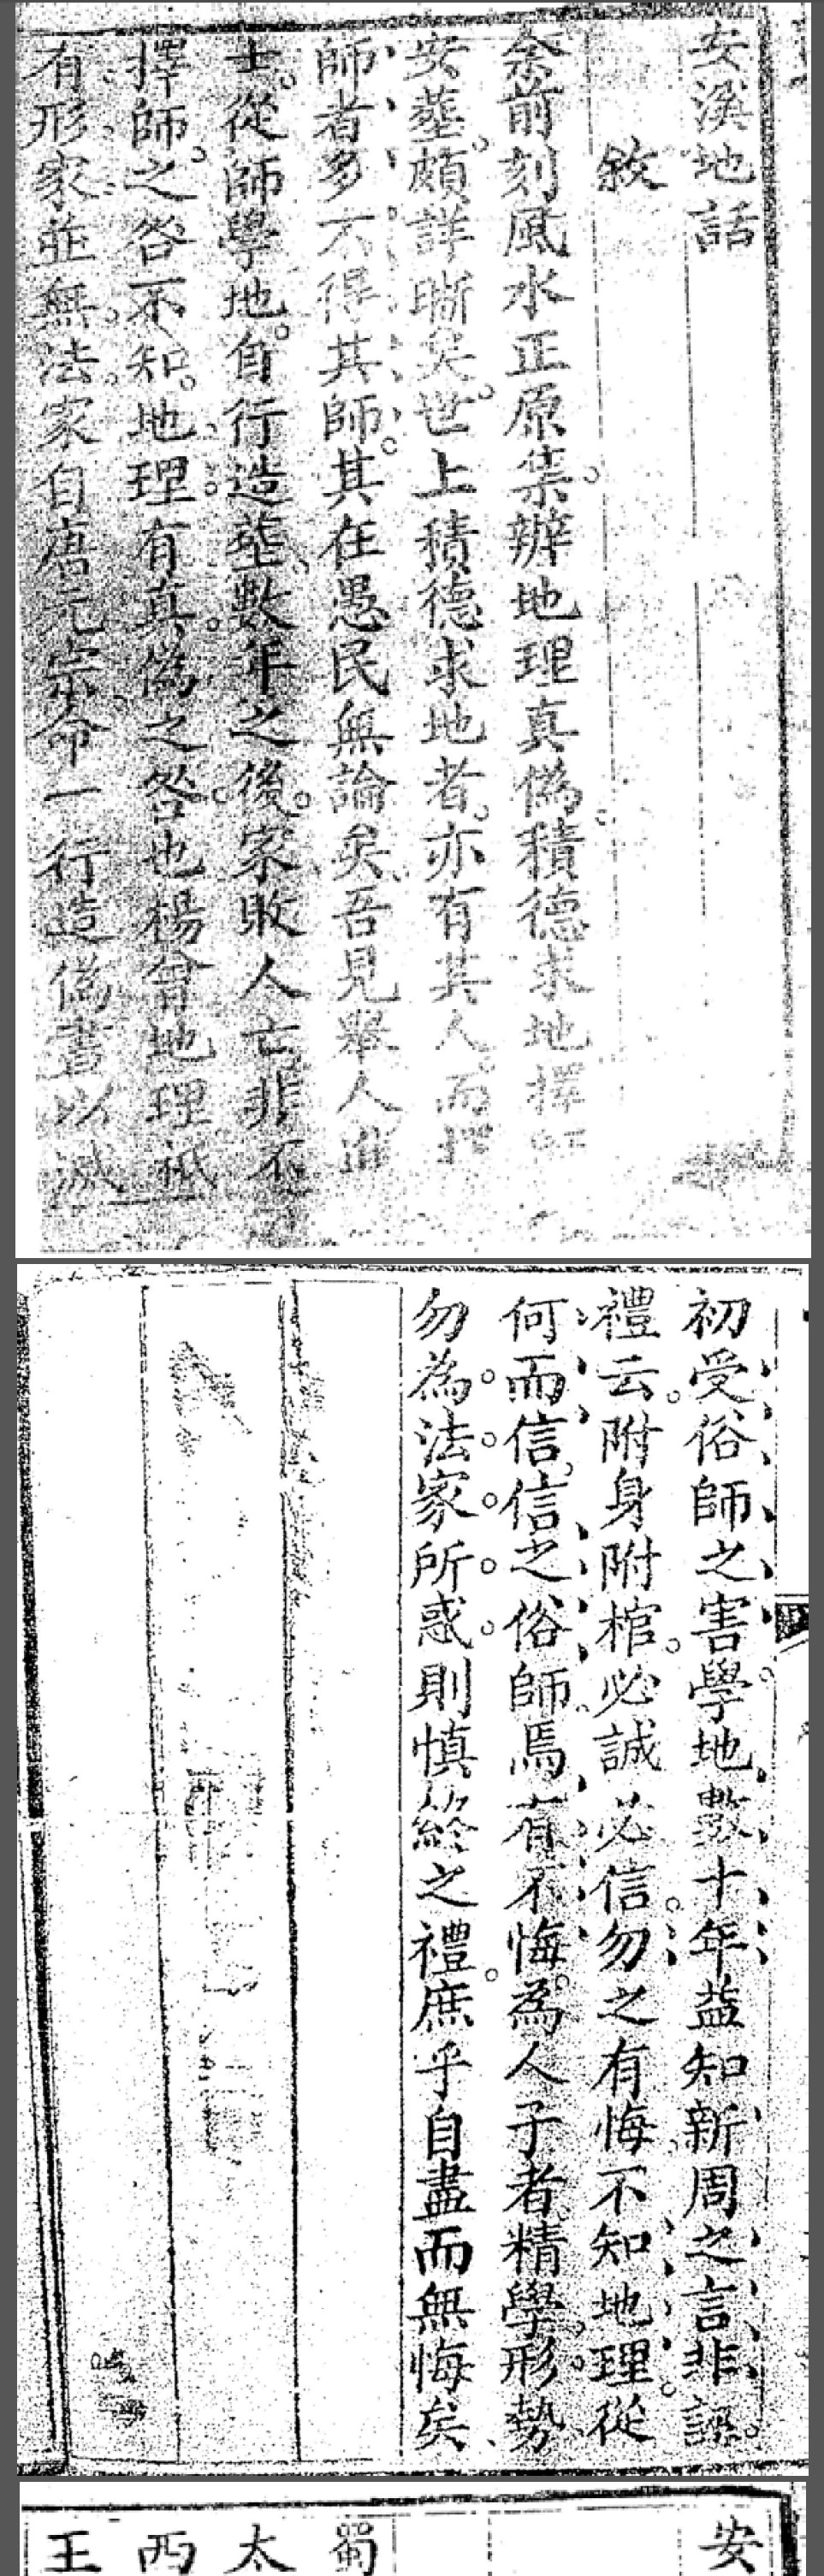 安溪地話
敘
余前刻風水正原集辦地理真偽積德求地擇師
安塟頗詳晰矣世上積德求地者亦有其人而擇
師者多不得其師其在愚民無論矣吾見舉人進
士從師學地自行造塟數年之後家敗人亡非不
擇師之咎不知地理有真偽之咎也楊曾地理祇
有形家並無法家自唐元宗命一行造偽書以滅
初受俗師之害學地數十年益知新周之言非誤
禮云附身附棺必誠必信勿之有悔不知地理從
何而信信之俗師焉有不悔為人子者精學形勢
勿為法家所惑則慎終之禮庶乎自盡而無悔矣
安
蜀
太
西
王